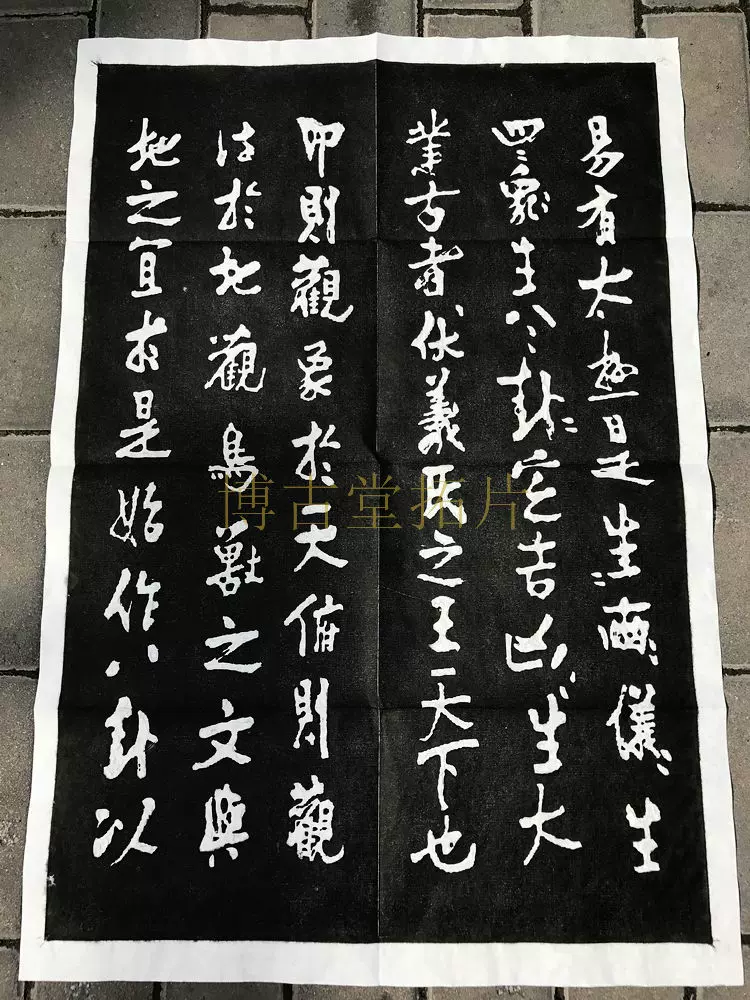 易有太極是生兩〻儀〻生
四〻象〻生八〻卦〻定吉凶〻生大
業古者伏羲氏之王天下也
仰則觀象於天俯則觀
法於地觀鳥獸之文與
地之宜於是始作八卦以
博古堂拓片